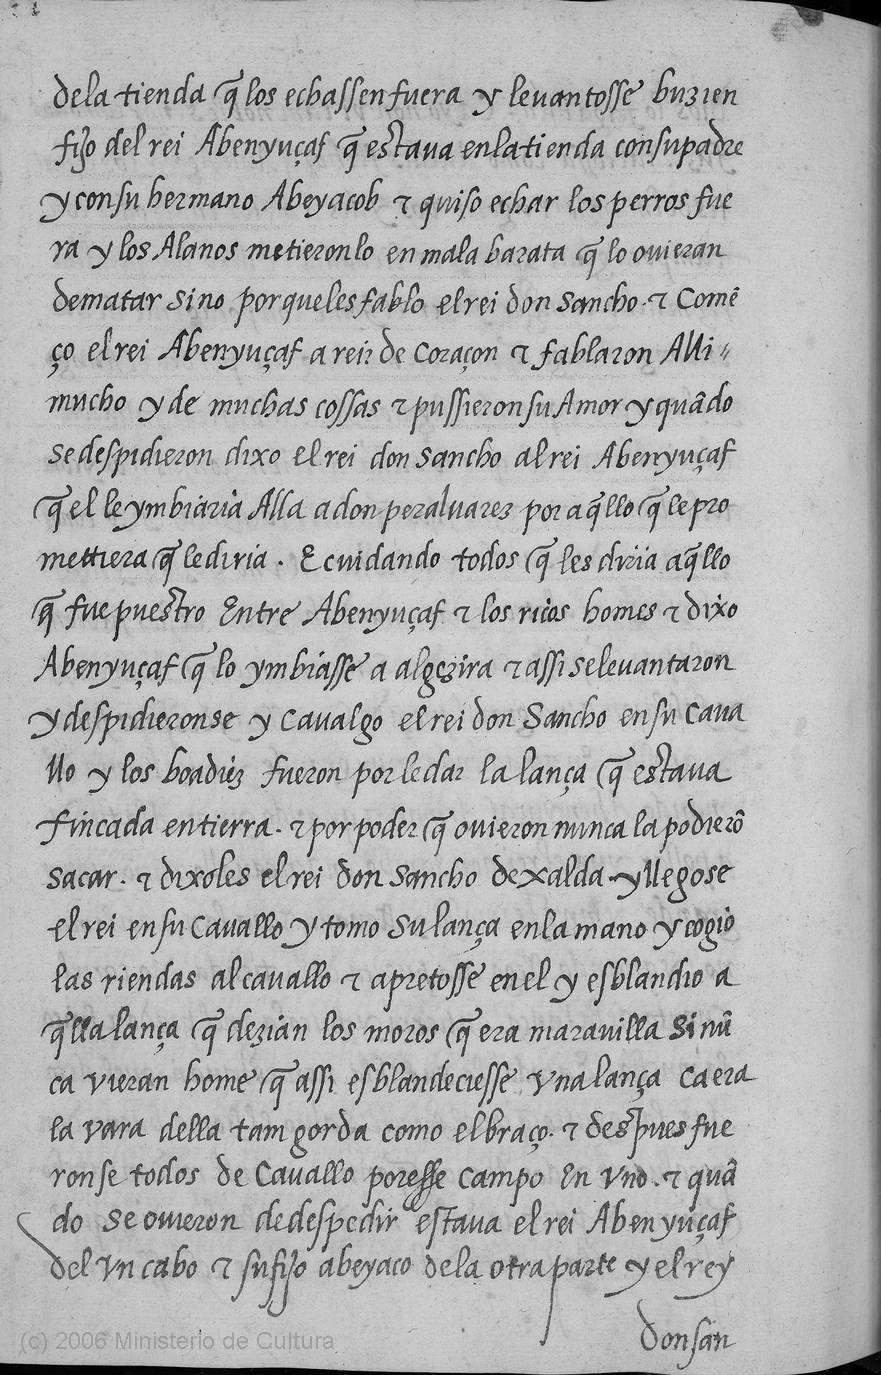 dela tienda q̃ los echassen fuera y leuantosse buzien
fijo del rei Abenyuçaf q̃ estaua enlatienda consupadre
y consu hermano Abeyacob τ quiso echar los perros fue
ra y los Alanos metieronlo en mala barata q̃ lo ouieran
dematar sino porquelesfablo elrei don sancho · τ Comẽ
ço elrei Abenyuçaf a reir de coraçon τ fablaron Alli
mucho y de muchas cossas τ pussieronsu Amor y quãdo
se despidieron dixo elrei don sancho alrei Abenyuçaf
q̃ el le ymbiaria Alla a don peraluarez por aq̃llo q̃ le pro
mettiera q̃ lediria . E cuidando todos q̃ les diria aq̃llo
q̃ fue puestro Entre Abenyuçaf τ los ricos homes τ dixo
Abenyuçaf q̃ lo ymbiasse a algezira τ assi seleuantaron
y despidieronse y caualgo elrei don Sancho en su caua
llo y los boadiez fueron porledar la lança q̃ estaua
fincada entierra · τ por poder q̃ ouieron nunca la podierõ
sacar · τ dixoles elrei don sancho dexalda · y llegose
elrei ensu cauallo y tomo su lança enla mano y cogio
las riendas alcauallo τ apretosse enel y esblandio a
q̃lla lança q̃ dezian los moros q̃ era marauilla si nũ
ca vieran home q̃ assi esblandeciesse vna lança ca era
la vara della tam gorda como elbraço · τ despues fue
ronse todos de cauallo poresse campo En vno · τ quã
do se ouieron dedespedir estaua elrei Abenyuçaf
del vn cabo τ sufijo abeyaco dela otra parte y elrey
donsan
(c) 2006 Ministerio de Cultura